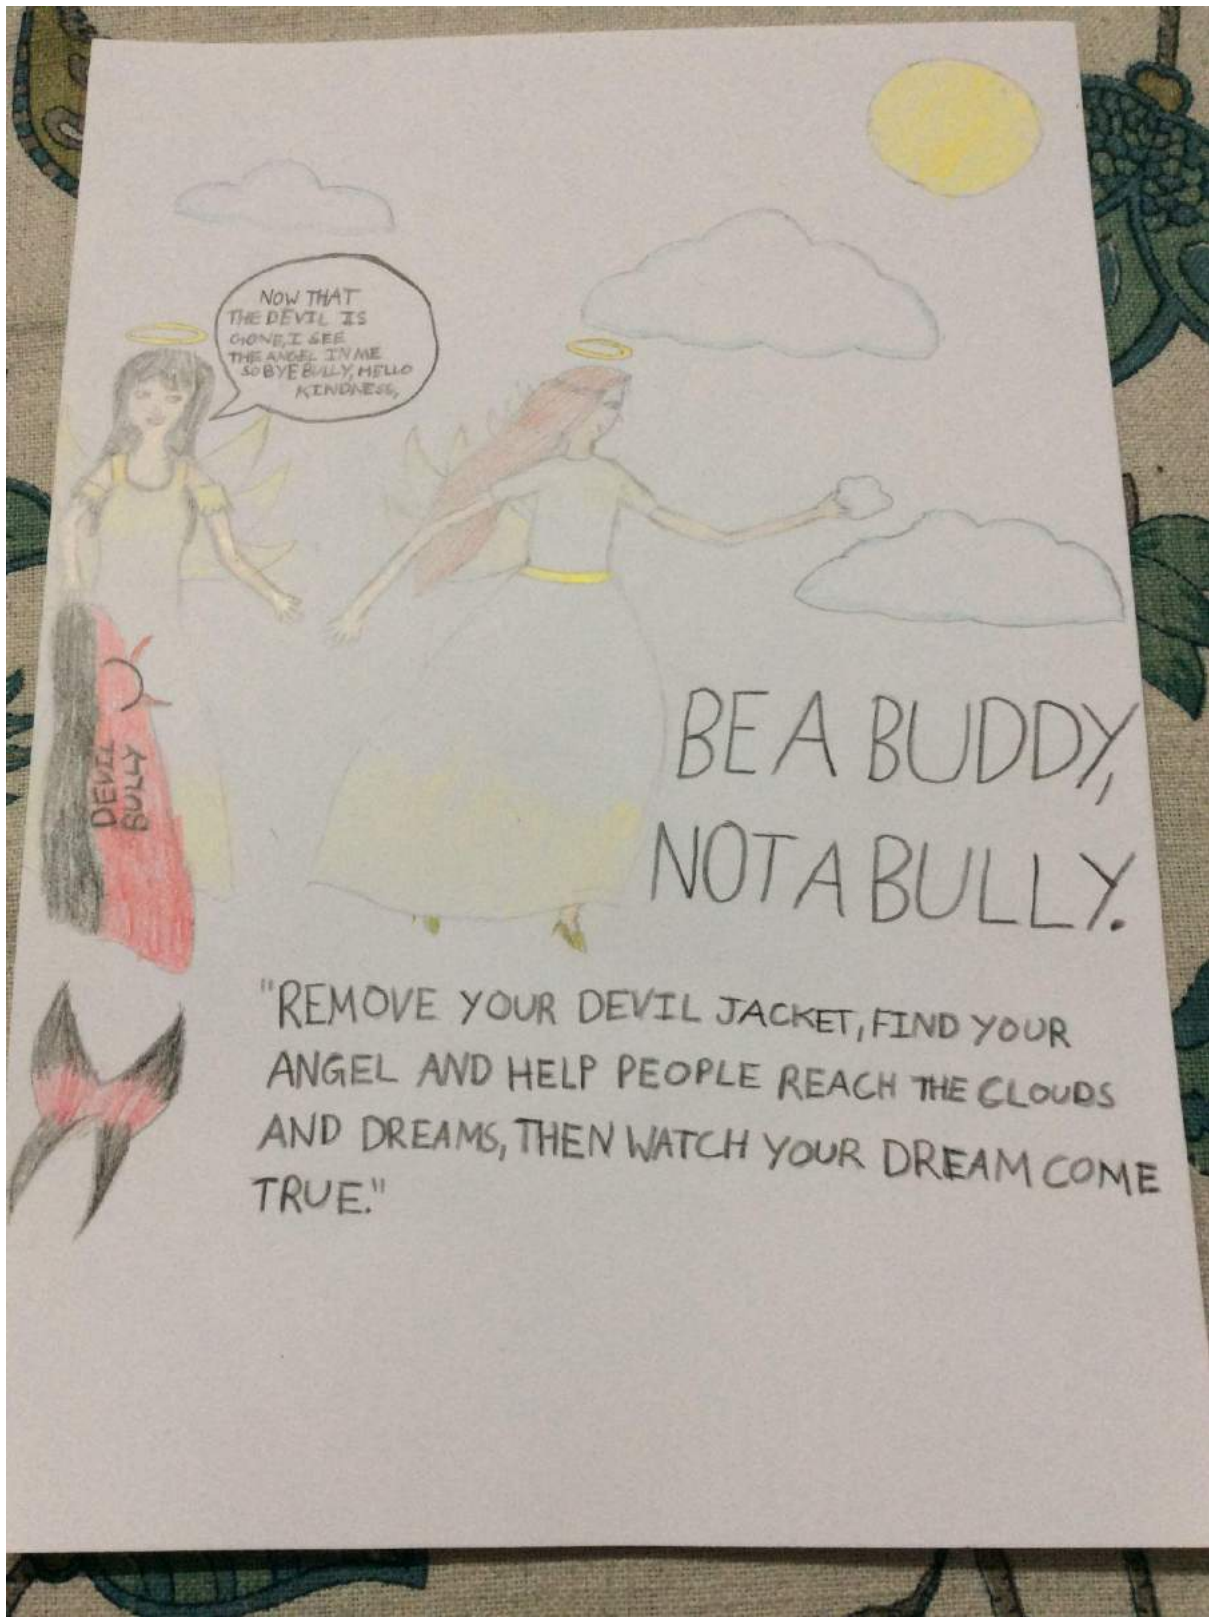 NOW THAT
THE DEVIL IS
GONE, I SEE
THE ANGEL IN ME
SO BYE BULLY, HELLO
KINDNESS,
DEVIL
BULLY
BE A BUDDY,
NOT A BULLY.
"REMOVE YOUR DEVIL JACKET, FIND YOUR
ANGEL AND HELP PEOPLE REACH THE CLOUDS
AND DREAMS, THEN WATCH YOUR DREAM COME
TRUE."